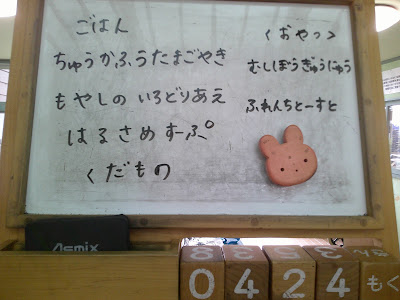 ごはん
ちゅうかふうたまごやき
もやしの いろどりあえ
はるさめすーぷ
くだもの
<おやつ>
むしぼうぎゅうにゅう
ふれんちとーすと
Asmix
0424もく